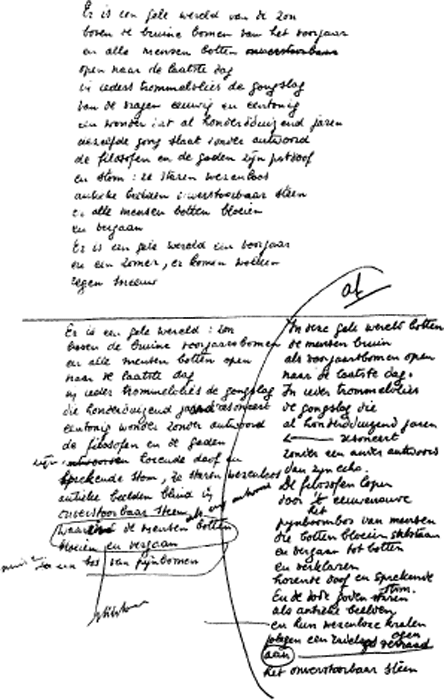 Er is een gele wereld van de zon
boven de bruine bomen van het voorjaar
en alle mensen botten onverstoorbaar
open naar de laatste dag
in ieders trommelvlies de gongslag
van de vragen eeuwig en eentonig
een wonder dat al honderdduizend jaren
dezelfde gong slaat zonder antwoord
de filosofen en de goden zijn potdoof
en stom : ze staren wezenloos
antieke beelden onverstoorbaar steen
en alle mensen botten bloeien
en vergaan
Er is een gele wereld een voorjaar
en een zomer, er komen wolken
regen sneeuw
af
Er is een gele wereld : zon
boven de bruine voorjaarsbomen
en alle mensen botten open
naar de laatste dag
in ieder trommelvlies de gongslag
die honderdduizend jaar resoneert
eentonig wonder zonder antwoord
de filosofen en de goden
zijn antwoorden horende doof en
sprekende stom, ze staren wezenloos
antieke beelden blind in
onverstoorbaar steen als antwoord
waarin de mensen botten
bloeien en vergaan
een bos van pijnbomen
In deze gele wereld botten
de mensen bruin
als voorjaarsbomen open
naar de laatste dag.
In ieder trommelvlies
de gongslag die
al honderdduizend jaren
resoneert
zonder een ander antwoord
dan zijn echo.
De filosofen lopen
door 't eeuwenoude
het
pijnboombos van mensen
die botten bloeien
en vergaan tot botten
en verklaren
horende doof en sprekende
stom.
En de dode goden staren
als antieke beelden
en hun wezenloze
ogen
aan
het onverstoorbaar steen